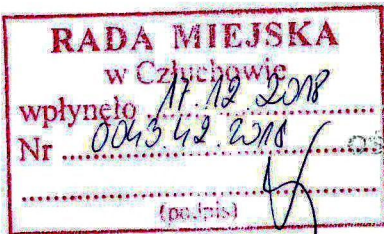 RADA MIEJSKA
w Człuchowie
wpłynęło 17.12.2018
Nr 0043.42.2018
(podpis)